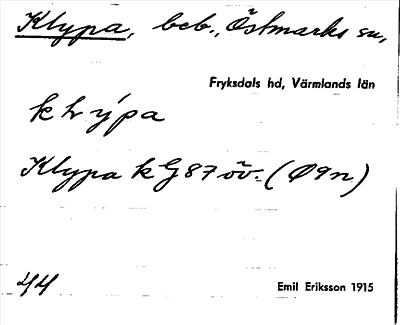 Klypa, beb., Östmarks sn,
Fryksdals hd, Värmlands län
klýpa
Klypa k G 87 öv. (Ø9n)
44
Emil Eriksson 1915